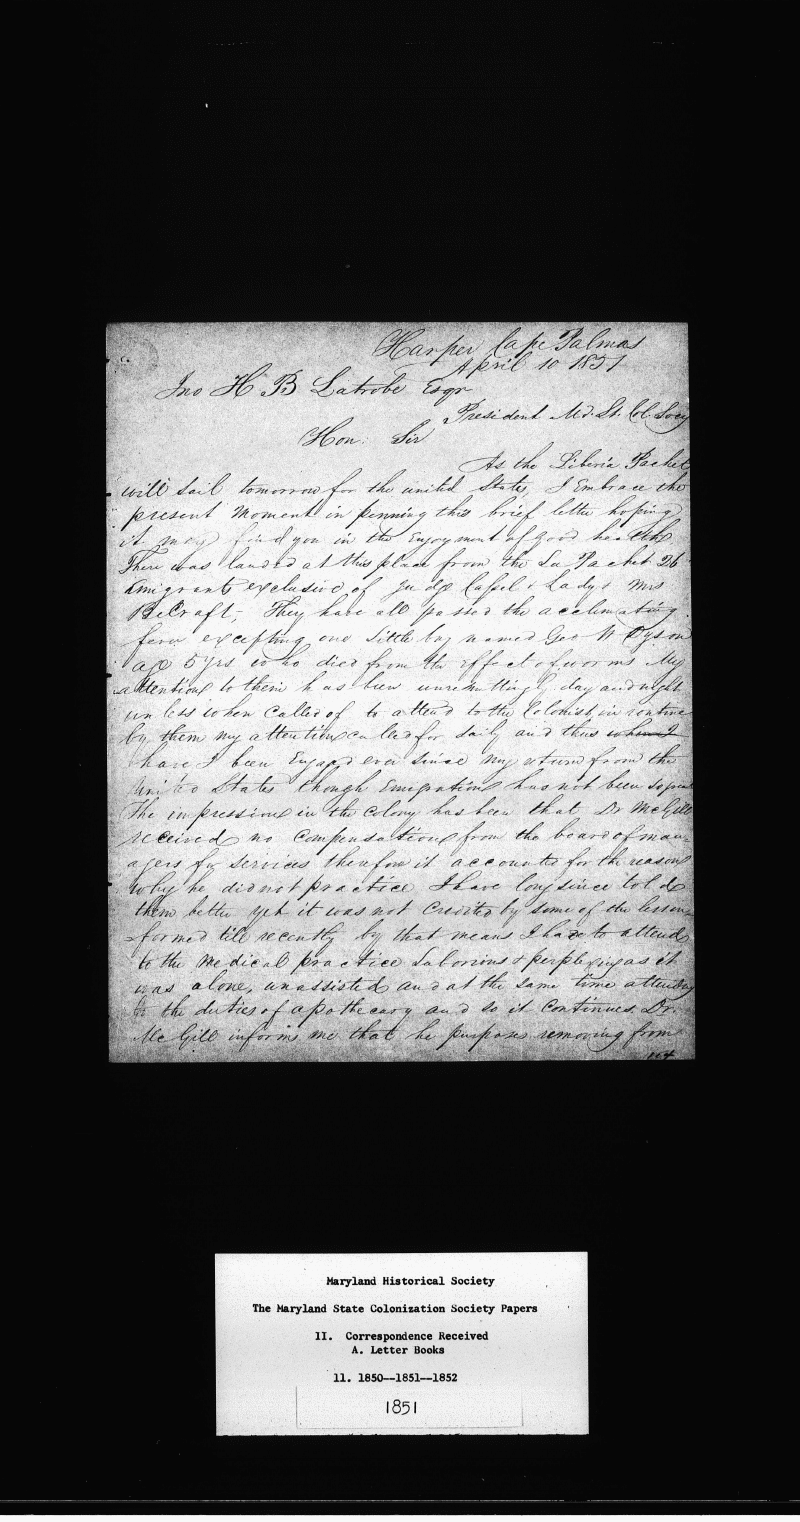 Harper Cape Palmas
April 10 1851
Jno H B Latrobe Esqr
President Md. St. Col. Socy
Hon. Sir
As the Liberia Packet
will sail tomorrow for the united States, I Embrace the
present Moment in penning this brief letter hoping
it may find you in the Enjoyment of good health
There was landed at this place from the La Packet 26
Emigrants exclusive of Judge Cassel & Lady & Mrs
BeCraft, They have all passed the acclimating
fever excepting one little boy named Geo W Dyson
age 5 yrs who died from the Effect of worms My
attention to them has been unremittingly day and night
un less when called of to attend to the Colonist, in
by them my attention called for daily and thus when I
have I been Engaged ever since my return from the
United States though Emigration has not been so
The impression in the colony has been that Dr McGill
received no compensation from the board of man
agers for services therefore it accounted for the reason
why he did not practice I have long since told
them better yet it was not Credited by some of the less in
formed till recently by that means I had to attend
to the medical practice Laborious & perplexing as it
was alone, unassisted and at the same time attending
to the duties of apothecary and so it continues, Dr.
Mc Gill informs me that he purposes removing from
Maryland Historical Society
The Maryland State Colonization Society Papers
II. Correspondence Received
A. Letter Books
11. 1850--1851--1852
1851